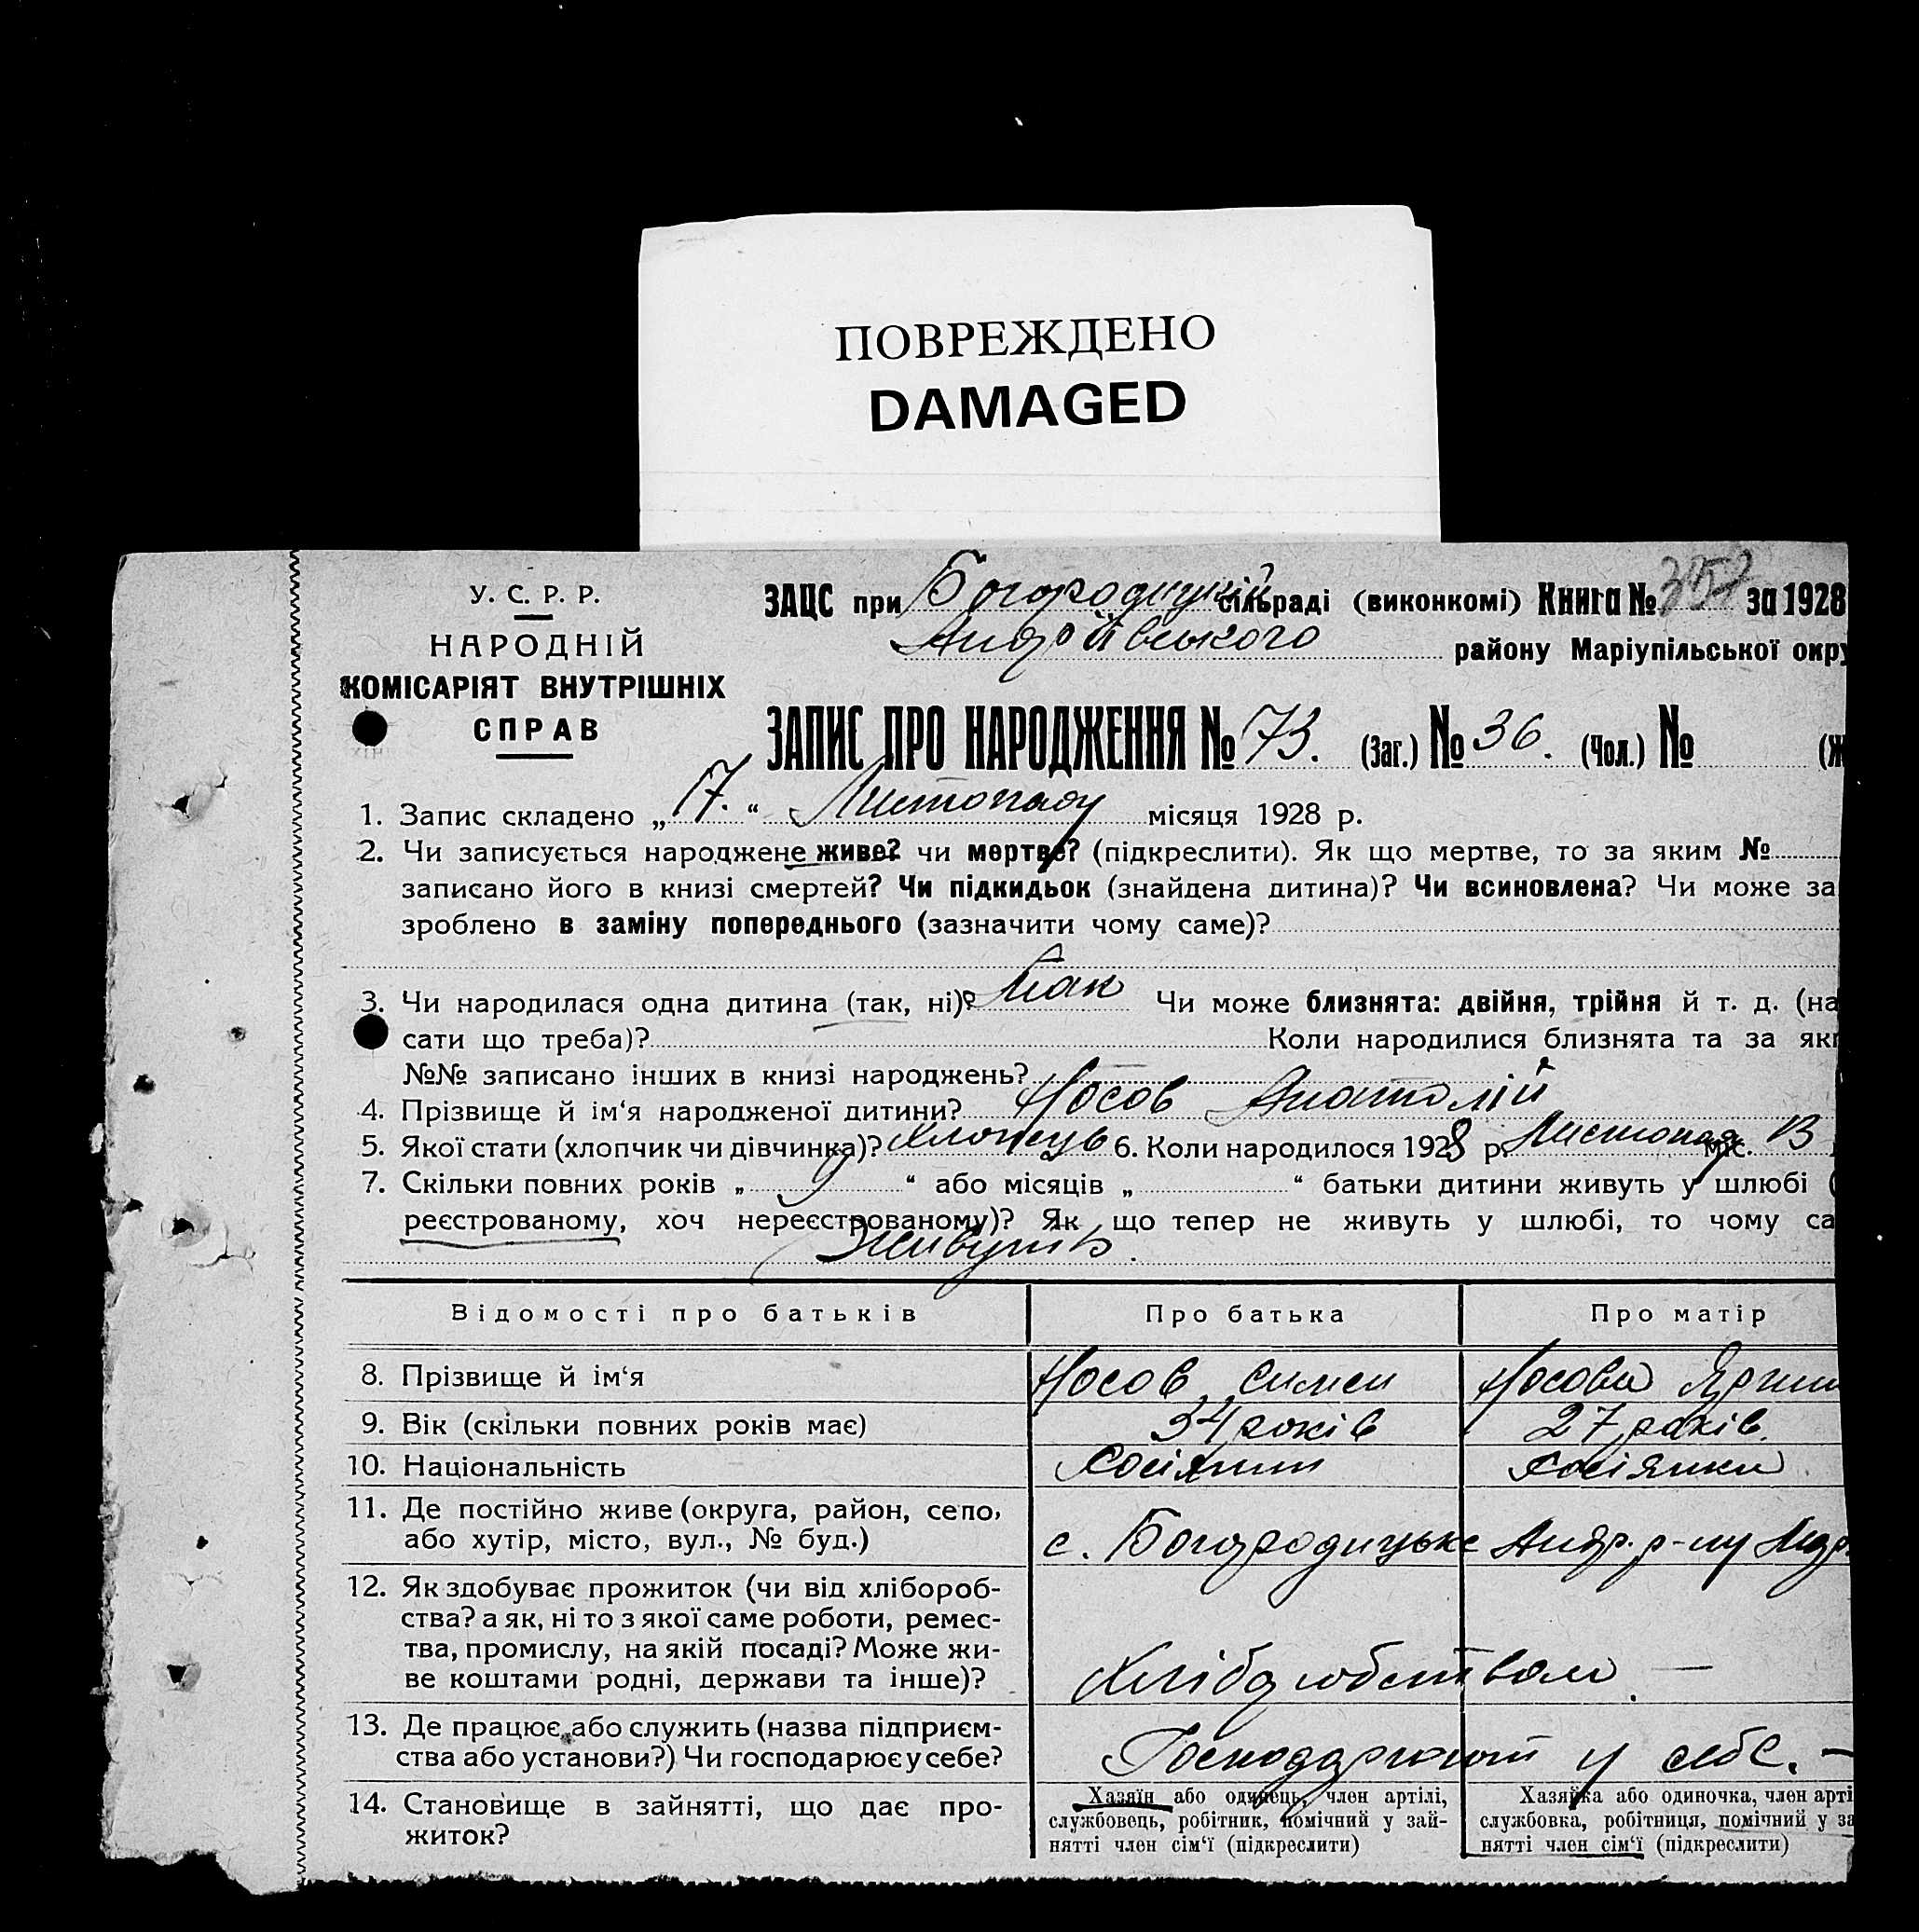 ПОВРЕЖДЕНО
DAMAGED
У. С. Р. Р.
НАРОДНІЙ
КОМІСАРІЯТ ВНУТРІШНІХ
СПРАВ
ЗАЦС при Богородицькій сільраді (виконкомі) Книга № за 1928
Андріївського району Маріупільської окру
ЗАПИС ПРО НАРОДЖЕННЯ № 73. (Заг.) № 36. (Чол.) № (Ж
1. Запис складено „ 17. “ Листопаду місяця 1928 р.
2. Чи записується народжене живе? чи мертве? (підкреслити). Як що мертве, то за яким №
записано його в книзі смертей? Чи підкидьок (знайдена дитина)? Чи всиновлена? Чи може за
зроблено в заміну попереднього (зазначити чому саме)?
3. Чи народилася одна дитина (так, ні)? Так Чи може близнята: двійня, трійня й т. д. (на
сати що треба)? Коли народилися близнята та за як
№№ записано інших в книзі народжень?
4. Прізвище й ім‘я народженої дитини? Носов Анатолій
5. Якої стати (хлопчик чи дівчинка)? Хлопець 6. Коли народилося 1928 р. Листопаду міс. 13
7. Скільки повних років „ 9 “ або місяців „ “ батьки дитини живуть у шлюбі (
реєстрованому, хоч нереєстрованому)? Як що тепер не живуть у шлюбі, то чому са
Живуть.
Відомості про батьків Про батька Про матір
8. Прізвище й ім‘я Носов Симен Носова
9. Вік (скільки повних років має) 34 років 27 років
10. Національність Росіянин Росіянка
11. Де постійно живе (округа, район, село,
або хутір, місто, вул., № буд.) с. Богородицьке Андр. р-ну
12. Як здобуває прожиток (чи від хлібороб-
ства? а як, ні то з якої саме роботи, ремес-
тва, промислу, на якій посаді? Може жи-
ве коштами родні, держави та інше)? —
13. Де працює або служить (назва підприєм-
ства або установи?) Чи господарює у себе? Господарюют у себе. —
14. Становище в зайнятті, що дає про-
житок?
Хазяїн або одинець, член артілі,
службовець, робітник, помічний у зай-
нятті член сім‘ї (підкреслити)
Хазяйка або одиночка, член арті
службовка, робітниця, помічний у за
нятті член сім‘ї (підкреслити)